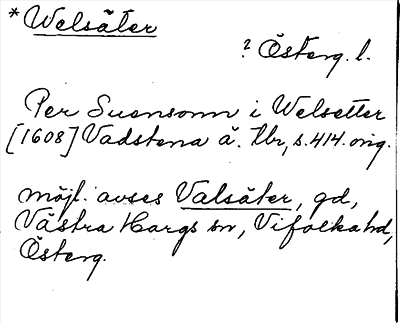 * Welsäter
? Österg. l.
Per Suensonn i Welsetter
[1608] Vadstena ä. tbr, s. 414. orig.
möjl. avses Valsäter, gd,
Västra Hargs sn, Vifolka hd,
Österg.